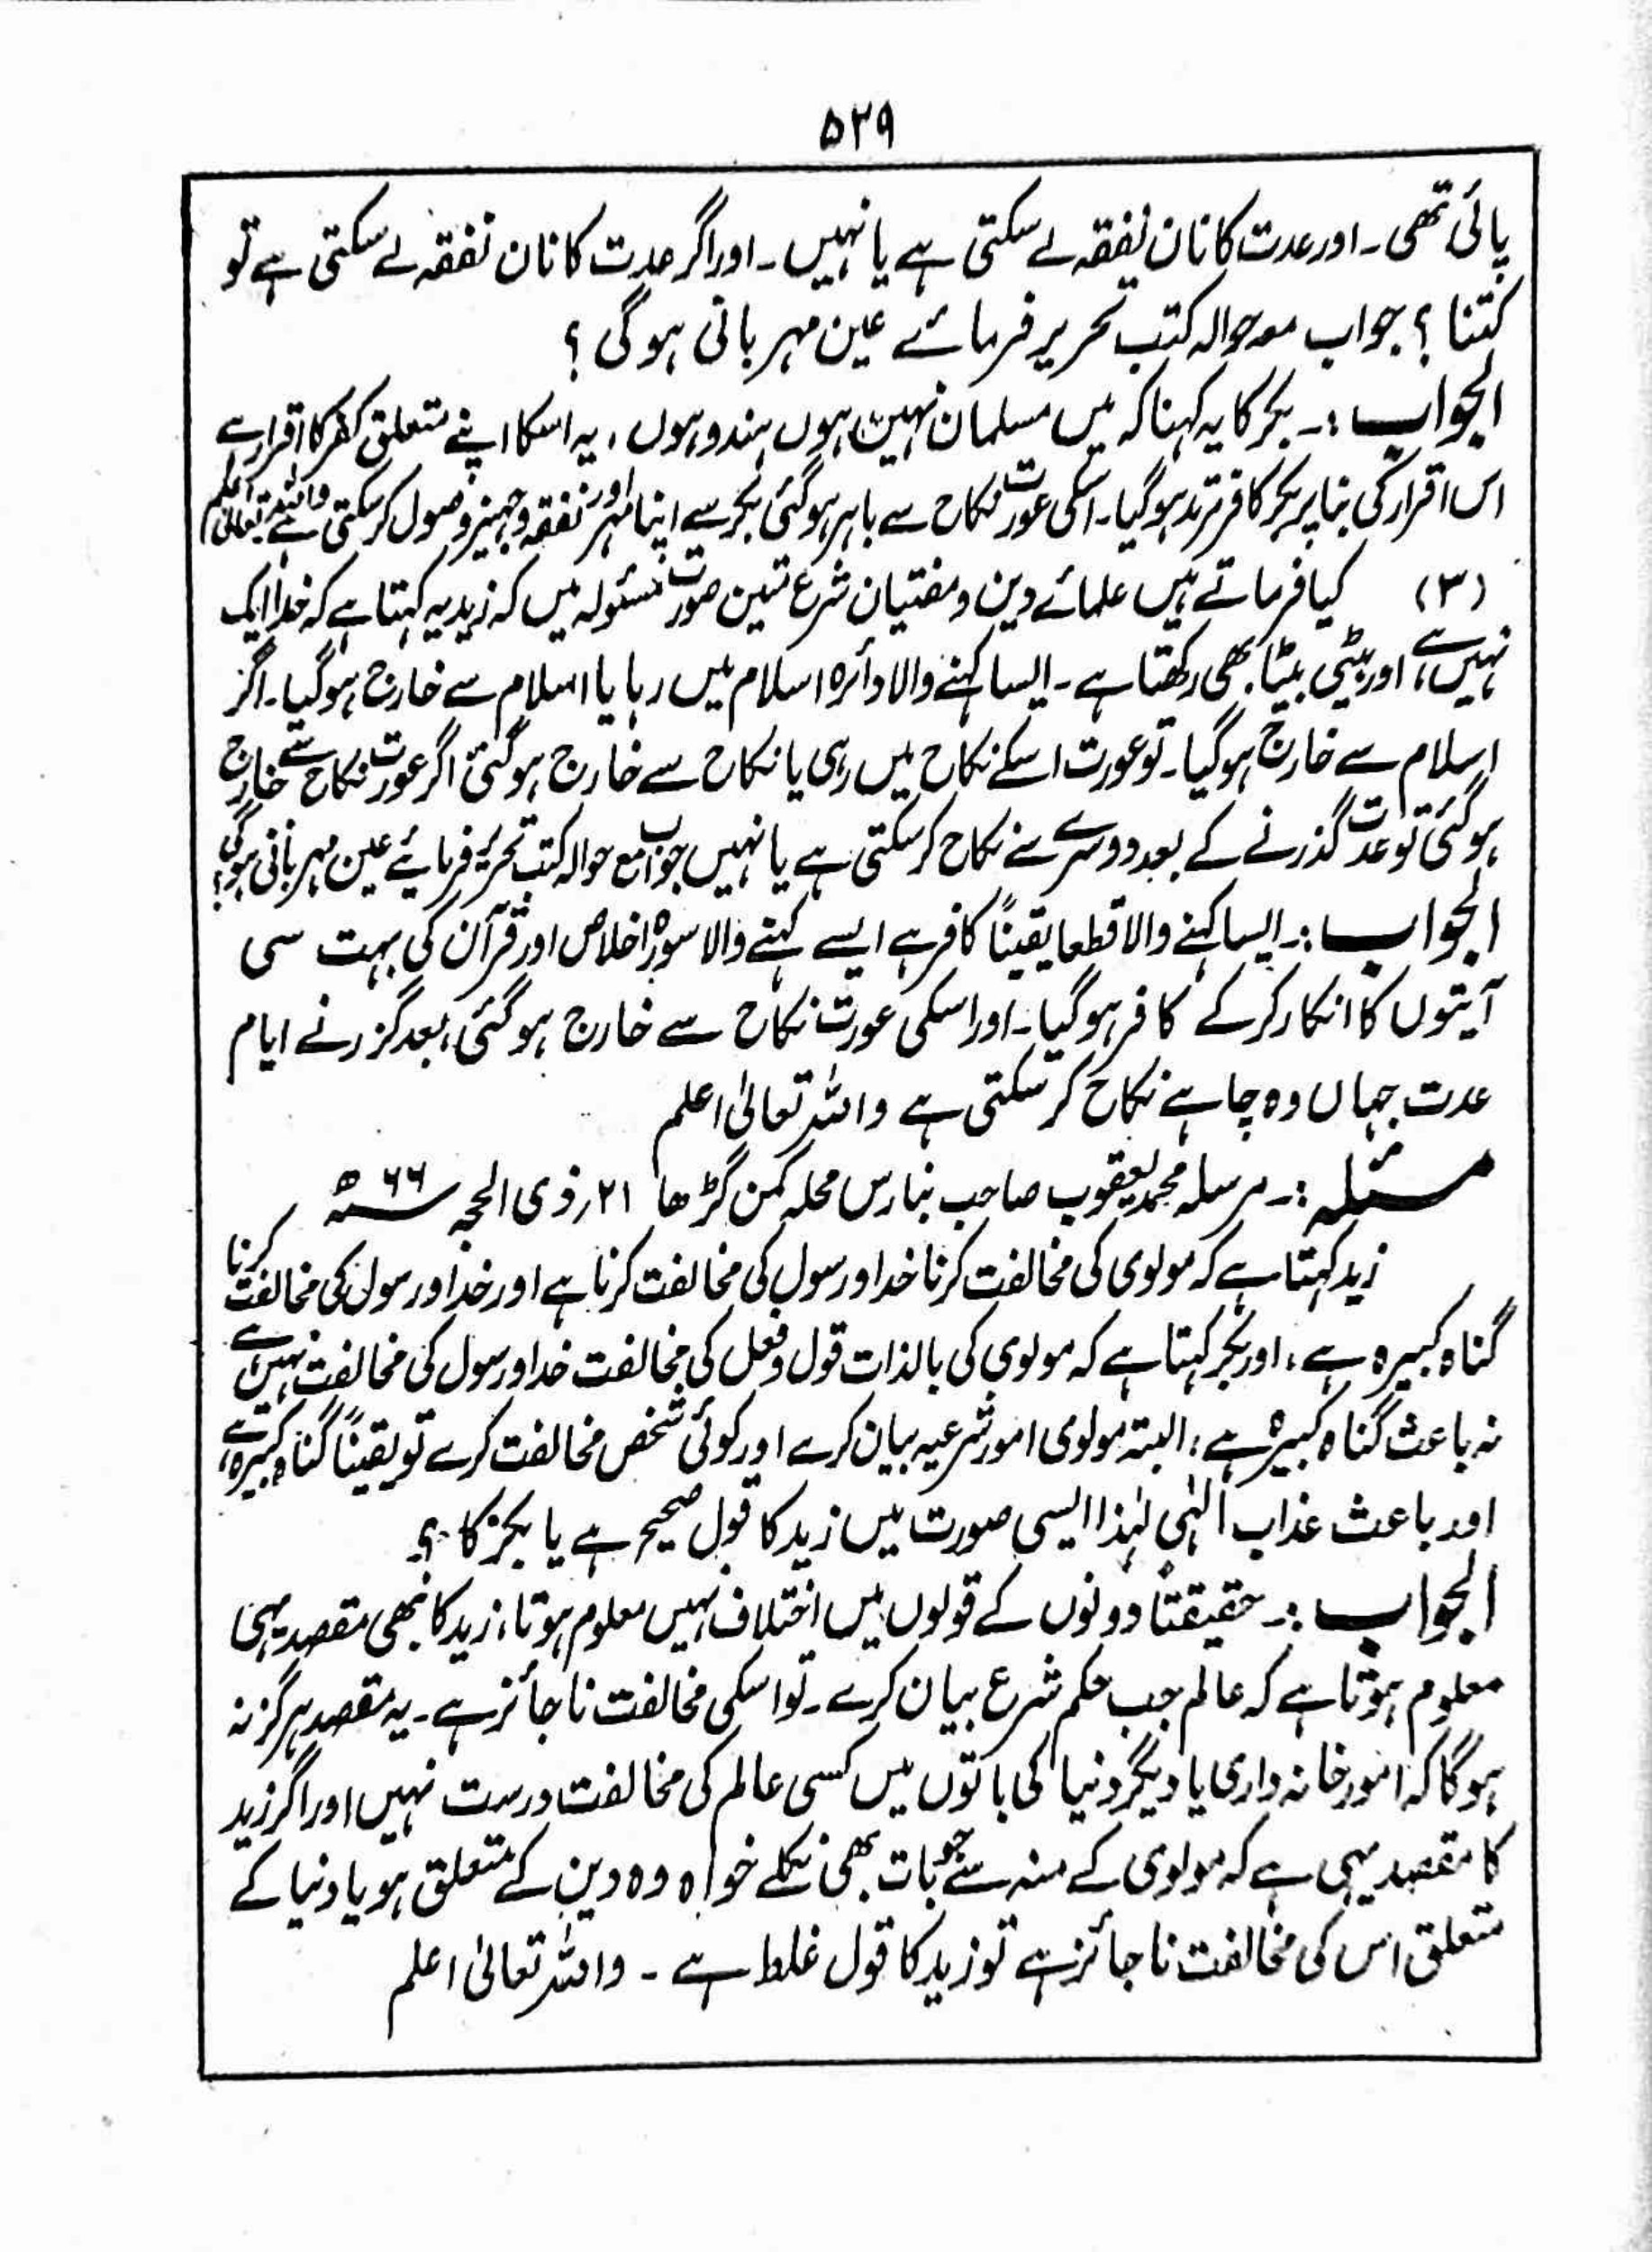 ۵۲۹
پائی تھی۔ اور عدت کا نان نفقہ لے سکتی ہے یا نہیں۔ اور اگر عدت کا نان نفقہ لے سکتی ہے تو
کتنا؟ جواب معہ حوالہ کتب تحریر فرمائے عین مہربانی ہوگی؟
الجواب :۔ بکر کا یہ کہنا کہ میں مسلمان نہیں ہوں ہندو ہوں، یہ اسکا اپنے متعلق کفر کا اقرار ہے
اس اقرار کی بنا پر بکر کافر مرتد ہوگیا۔ اسکی عورت نکاح سے باہر ہوگئی بکر سے اپنا مہر اور نفقہ و جہیز وصول کرسکتی ہے واللہ تعالیٰ اعلم
(۳) کیا فرماتے ہیں علمائے دین و مفتیان شرع متین صورت مسئولہ میں کہ زید یہ کہتا ہے کہ خدا ایک
نہیں ہے، اور بیٹی بیٹا بھی رکھتا ہے۔ ایسا کہنے والا دائرہ اسلام میں رہا یا اسلام سے خارج ہوگیا۔ اگر
اسلام سے خارج ہوگیا۔ تو عورت اسکے نکاح میں رہی یا نکاح سے خارج ہوگئی اگر عورت نکاح سے خارج
ہوگئی تو عدت گذرنے کے بعد دوسرے سے نکاح کرسکتی ہے یا نہیں جواب مع حوالہ کتب تحریر فرمایئے عین مہربانی ہوگی؟
الجواب :۔ ایسا کہنے والا قطعا یقیناً کافر ہے ایسے کہنے والا سورہ اخلاص اور قرآن کی بہت سی
آیتوں کا انکار کرکے کافر ہوگیا۔ اور اسکی عورت نکاح سے خارج ہوگئی، بعد گزرنے ایام
عدت جہاں وہ چاہے نکاح کرسکتی ہے واللہ تعالیٰ اعلم
مسئلہ :۔ مرسلہ محمد یعقوب صاحب بنارس محلہ کمن گڑھا ۲۱؍ ذی الحجہ ۶۶ھ
زید کہتا ہے کہ مولوی کی مخالفت کرنا خدا و رسول کی مخالفت کرنا ہے اور خدا و رسول کی مخالفت کرنا
گناہ کبیرہ ہے، اور بکر کہتا ہے کہ مولوی کی بالذات قول و فعل کی مخالفت خدا و رسول کی مخالفت نہیں ہے
نہ باعث گناہ کبیرہ ہے، البتہ مولوی امور شرعیہ بیان کرے اور کوئی شخص مخالفت کرے تو یقیناً گناہ کبیرہ ہے،
اور باعث عذاب الٰہی لہٰذا ایسی صورت میں زید کا قول صحیح ہے یا بکر کا ؟۔
الجواب :۔ حقیقتاً دونوں کے قولوں میں اختلاف نہیں معلوم ہوتا، زید کا بھی مقصد یہی
معلوم ہوتا ہے کہ عالم جب حکم شرع بیان کرے۔ تو اسکی مخالفت ناجائز ہے۔ یہ مقصد ہرگز نہ
ہوگا کہ امور خانہ داری یا دیگر دنیا کی باتوں میں کسی عالم کی مخالفت درست نہیں اور اگر زید
کا مقصد یہی ہے کہ مولوی کے منہ سے جو بات بھی نکلے خواہ وہ دین کے متعلق ہو یا دنیا کے
متعلق اس کی مخالفت ناجائز ہے تو زید کا قول غلط ہے ۔ واللہ تعالیٰ اعلم